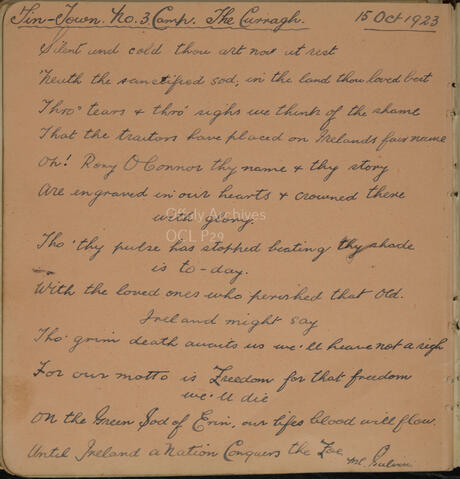 Tin-Town. No. 3 Camp. The Curragh. 15 Oct 1923
Silent and cold thou art now at rest
'Neuth the sanctified sod, in the land thou loved best
Thro' tears & thro' sighs we think of the shame
That the traitors have placed on Irelands fair name
Oh! Rory O'Connor thy name & thy story
Are engraved in our hearts & crowned there
with glory.
Offaly Archives
OCL P29
Tho' thy pulse has stopped beating thy shade
is to-day.
With the loved ones who perished that Old.
Ireland might say
Tho' grim death awaits us we'll heave not a sigh
For our motto is Freedom for that freedom
we'll die
On the Green Sod of Erin, our lifes blood will flow.
Until Ireland a Nation Conquers the Foe